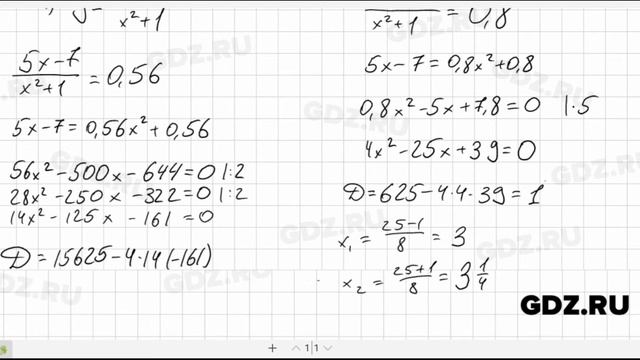 y= x²+1
(5x-7)/(x²+1) = 0,56
5x-7=0,56x²+0,56
56x²-500x-644=0 |:2
28x²-250x-322=0 |:2
14x²-125x-161=0
D=15625-4·14(-161)
x²+1 = 0,8
5x-7=0,8x²+0,8
0,8x²-5x+7,8=0 |·5
4x²-25x+39=0
D=625-4·4·39=1
x₁=(25-1)/8=3
x₂=(25+1)/8=3 1/4
GDZ.RU
1|1